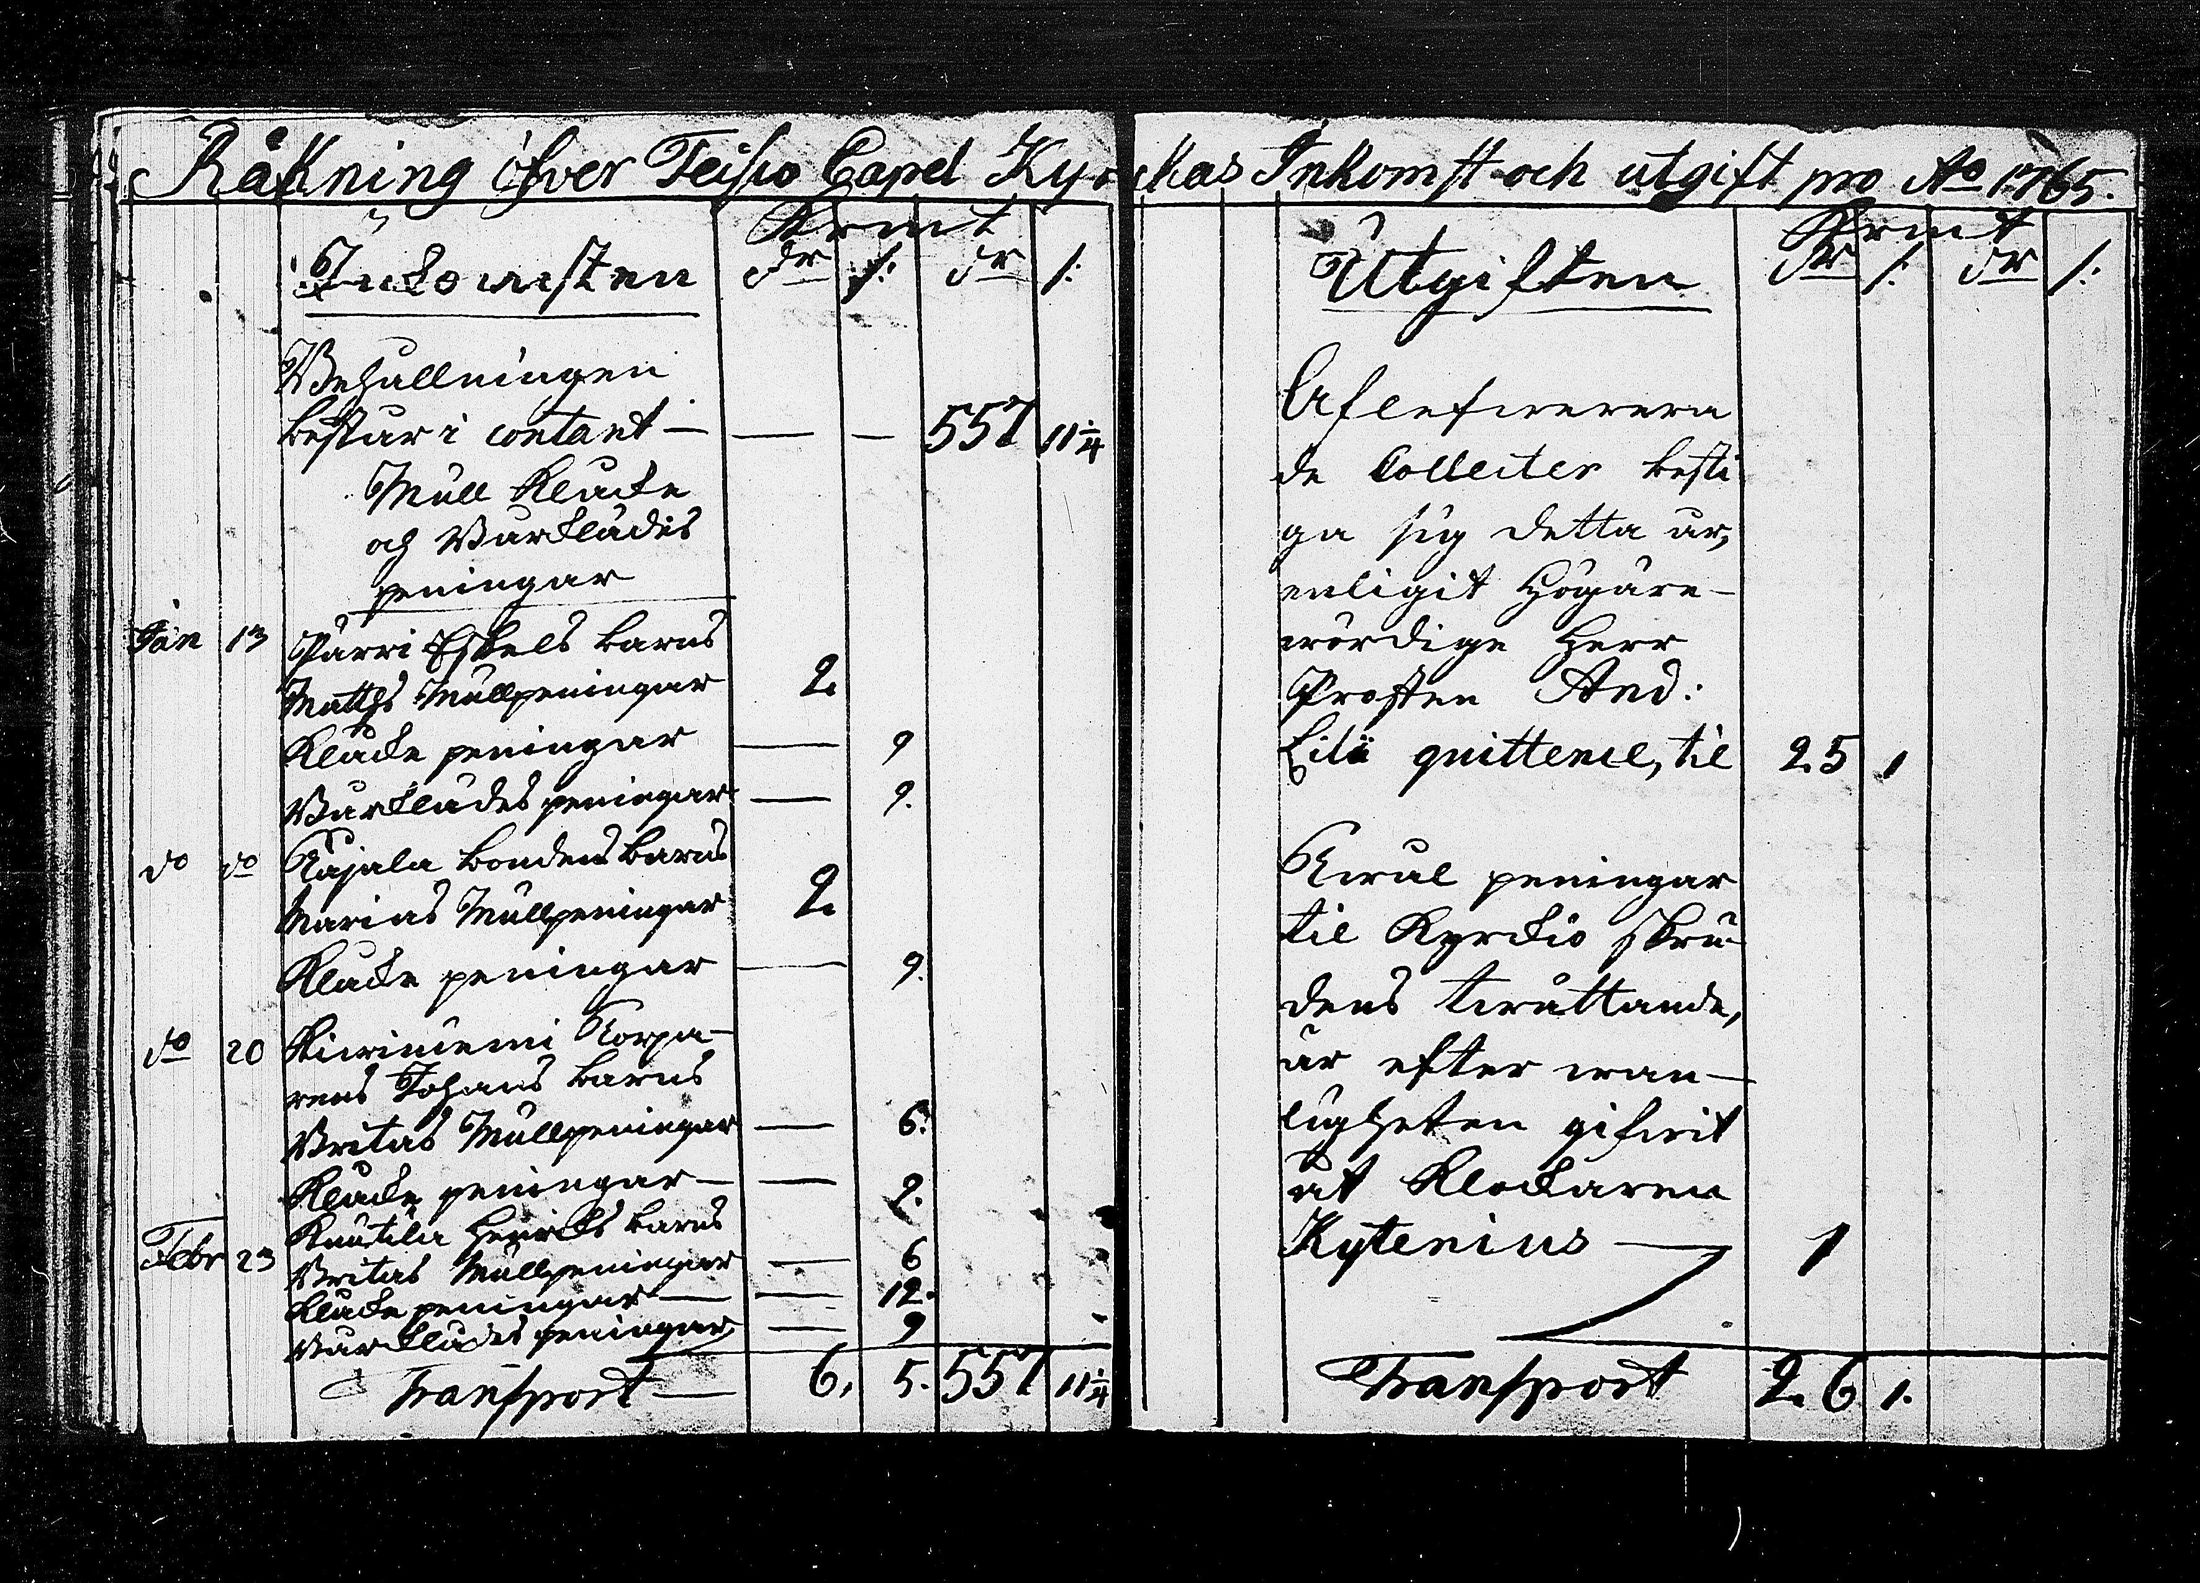 Räkning öfver Teisco Capel Kyrckas Inkomst och utgift pro Ao 1765.
Inkomsten
Krmt
dr /: dr /:
Behållningen
består i contant — — — 557 11 1/4
Mull Klåcke
och Bårklädes
peningar
Jan 13 Pärri Eskels barns
Matths Mullpeningar 2.
Klåcke peningar — 9
Bårklädes peningar — 9.
do do Kajala bondens barns
Marias Mullpeningar 2.
Klåcke peningar — 9.
do 20 Kiviniemi Torpa-
rens Johans barns
Britas Mullpeningar — 6.
Klåcke peningar — — 2.
Knutila Henrics barns
Febr 23 Britas Mullpeningar — 6
Klåcke peningar — — 12.
Bårklädes peningar — 9
Transport — 6. 5. 557 11 1/4
Utgiften
Krmt
dr /: dr /:
Aflefwerera
de Collecter besti
ga sig detta år,
enligit Högäre-
wördige Herr
Prosten And:
Lilii quittence, til 25 1
Kiwal peningar
til Kyrckio skru
dens twättande,
är efter wan-
ligheten gifwit
åt Klockaren
Kytenius — 1
Transport 26 1.